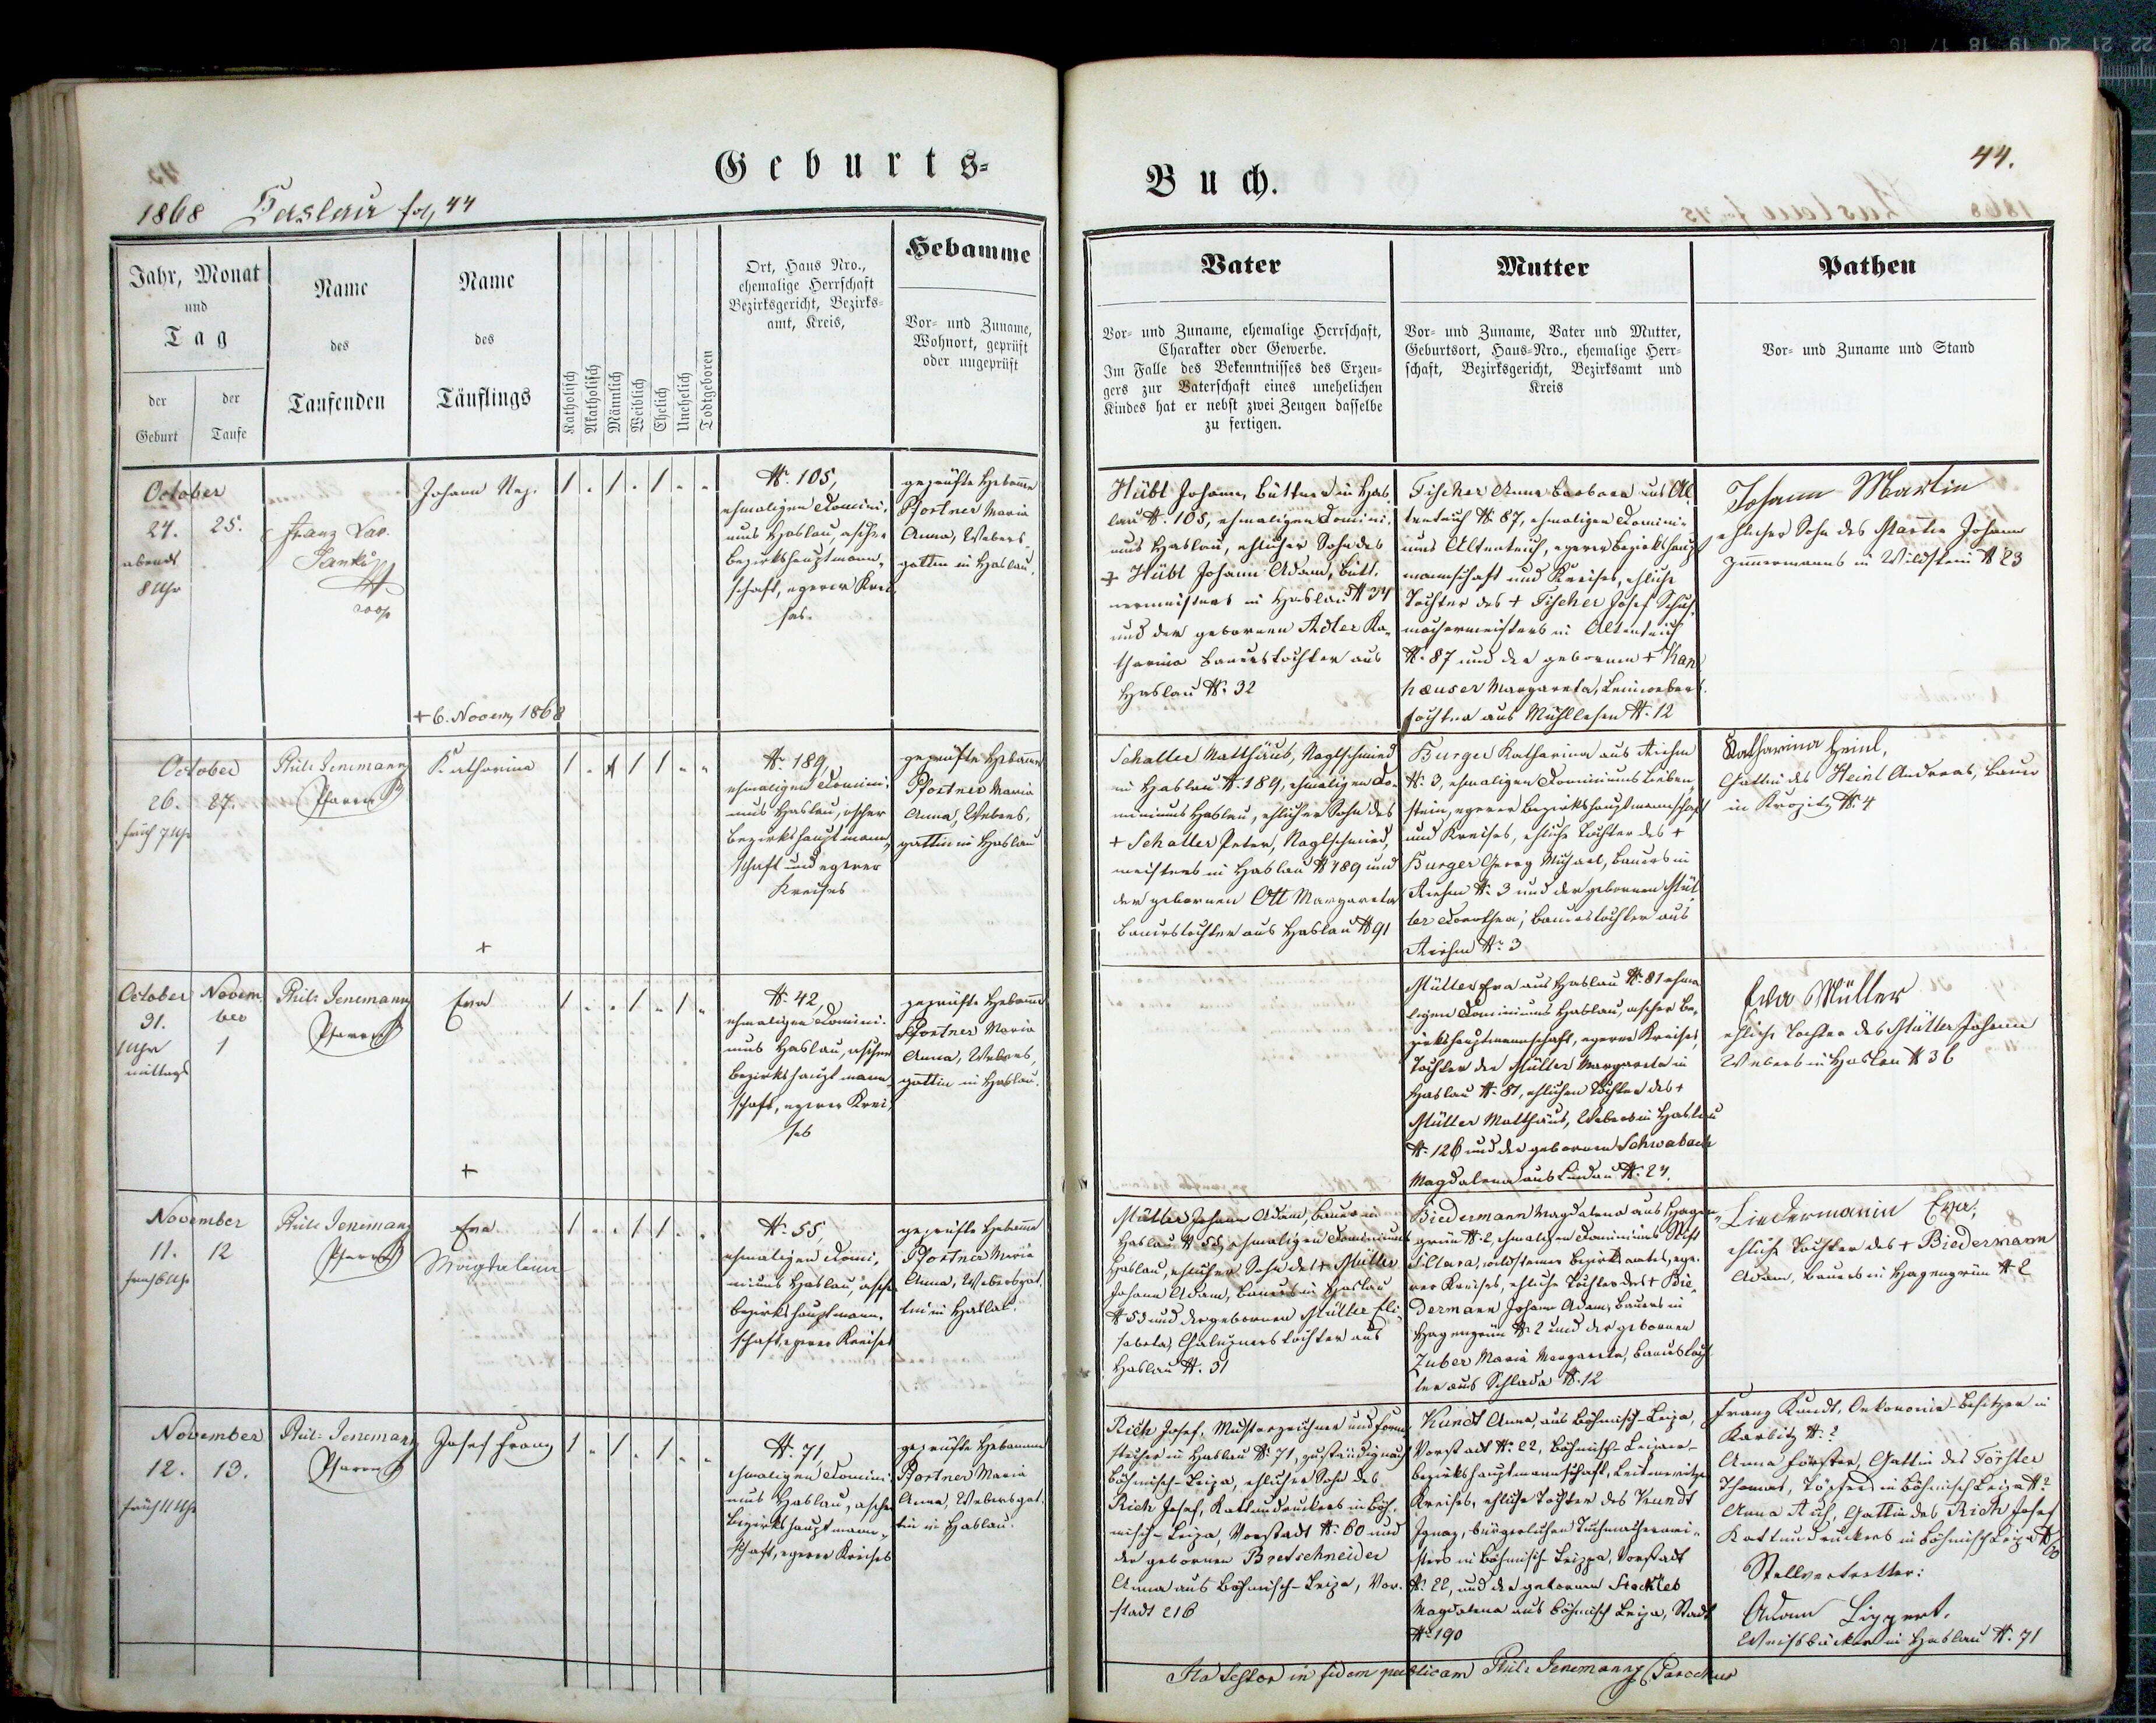 Geburts-
Buch.
44.
1868 Haslau fol, 44
Jahr, Monat
und
Tag
der
Geburt
der
Taufe
Name
des
Taufenden
Name
des
Täuflings
Katholisch
Akatholisch
Männlich
Weiblich
Ehelich
Unehelich
Todtgeboren
Ort, Haus Nro.,
ehemalige Herrschaft
Bezirksgericht, Bezirks-
amt, Kreis,
Hebamme
Vor- und Zuname,
Wohnort, geprüft
oder ungeprüft
Vater
Vor- und Zuname, ehemalige Herrschaft,
Charakter oder Gewerbe.
Im Falle des Bekenntnisses des Erzeu-
gers zur Vaterschaft eines unehelichen
Kindes hat er nebst zwei Zeugen dasselbe
zu fertigen.
Mutter
Vor- und Zuname, Vater und Mutter,
Geburtsort, Haus-Nro., ehemalige Herr-
schaft, Bezirksgericht, Bezirksamt und
Kreis
Pathen
Vor- und Zuname und Stand
October
24. 25.
abends
8 Uhr
Franz Xav.
Johann Nep.
+ 6. Novem 1868
1 . 1 . 1 . .
N. 105,
ehemaligen Domini,
ums Haslau, ascher
Bezirkshauptmann,
schaft, egerer Krei,
ses.
geprüfte Hebamme
Pfortner Maria
Anna, Webers
gattin in Haslau.
Hübl Johann, Büttner in Has,
lau N. 105, ehemaligen Domini,
ums Haslau, ehlicher Sohn des
+ Hübl Johann Adam, Bütt,
nermeisters in Haslau N 34
und der gebornen Adler Ka,
tharina Bauerstochter aus
Haslau N. 32
Fischer Anna Barbara aus Al
tenteich N. 87, ehemaligen Domini-
ums Altenteich, egerer Bezirkshaupt
mannschaft und Kreises, ehliche
Tochter des + Fischer Josef Schuh,
machermeisters in Altenteich
N. 87 und der gebornen + Kan
haeuser Margareta, Leinwebers
tochter aus Mühllesen N. 12
Johann Martin
ehlicher Sohn des Martin Johann
Zimermanns in Wildstein N 23
October
26. 27.
früh 7 Uhr
Phil: Jenemann
Pfarrer
Katharina
+
1 . 1 1 . .
N. 189,
ehemaligen Domini,
ums Haslau, ascher
Bezirkshauptmann,
schaft und egerer
Kreises
geprüfte Hebamme
Pfortner Maria
Anna, Webers,
gattin in Haslau
Schaller Matthäus, Naglschmied
in Haslau N. 189, ehemaligen Do-
miniums Haslau, ehlicher Sohn des
+ Schaller Peter, Naglschmied,
meisters in Haslau N 189 und
der gebornen Ott Margareta
Bauerstochter aus Haslau N 91
Burger Katharina aus Riehm
N. 3, ehemaligen Dominiums Lieben
stein, egerer Bezirkshauptmannschaft
und Kreises, ehliche Tochter des +
Burger Georg Michael, Bauers in
Riehm N. 3 und der gebornen Mül
ler Dorothea, Bauerstochter aus
Riehm N. 3
Katharina Heinl,
Gattin des Heinl Andreas, Bauer
in N. 4
October Novem
31. ber
1 Uhr 1
mittags
Phil: Jenemann
Pfarrer
Eva
+
1 . . 1 . 1 .
N. 42,
ehemaligen Domini-
ums Haslau, ascher
Bezirkshauptmann,
schaft, egerer Krei,
ses
geprüfte Hebamme
Pfortner Maria
Anna, Webers,
gattin in Haslau.
Müller Eva aus Haslau N. 81 ehma
ligen Dominiums Haslau, ascher Be,
zirkshauptmannschaft, egerer Kreises,
Tochter der Müller Margareta in
Haslau N. 81, ehlichen Tochter des +
Müller Matthäus, Webers in Haslau
N. 126 und der gebornen Schwabach
Magdalena aus Lindau N. 24.
Eva Müller
ehliche Tochter des Müller Johann
Webers in Haslau N 36
November
11. 12
früh 6 Uhr
Phil: Jenemann
Pfarrer
Eva
Magdalena
1 . . 1 1 . .
N. 55,
ehemaligen Domi,
niums Haslau, ascher
Bezirkshauptmann,
schaft, egerer Kreises
geprüfte Hebamme
Pfortner Maria
Anna, Webersgat,
tin in Haslau.
Müller Johann Adam, Bauer in
Haslau N 55, ehemaligen Dominiums
Haslau, ehlicher Sohn des + Müller
Johann Adam, Bauers in Haslau
N 55 und der gebornen Müller Eli
sabeta, Chaluznerstochter aus
Haslau N. 31
Biedermann Magdalena aus Hagen,
grün N. 2, ehemaligen Dominiums Stift
S. Clara, wildsteiner Bezirksamtes, ege,
rer Kreises, ehliche Tochter des + Bie,
dermann Johann Adam, Bauers in
Hagengrün N. 2 und der gebornen
Zuber Maria Margareta, Bauerstoch
ter aus Schlada N. 12
Biedermanin Eva,
ehliche Tochter des + Biedermann
Adam, Bauers in Hagengrün N 2
November
12. 13.
früh 11 Uhr
Phil: Jenemann
Pfarrer
Josef Franz
1 . 1 . 1 . .
N. 71,
ehemaligen Domini
ums Haslau, ascher
Bezirkshauptmann,
schaft, egerer Kreises
geprüfte Hebamme
Pfortner Maria
Anna, Webersgat,
tin in Haslau.
Rich Josef, Musterzeichner und Form
stecher in Haslau N. 71, zuständig nach
Böhmisch-Leipa, ehlicher Sohn des
Rich Josef, Kattundruckers in Böh,
misch-Leipa, Vorstadt N. 60 und
der gebornen Bretschneider
Anna aus Böhmisch-Leipa, Vor,
stadt 216
Kundt Anna, aus Böhmisch-Leipa,
Vorstadt N. 22, Böhmisch-Leipaer-
bezirkshauptmannschaft, Leitmeritzer
Kreises, ehliche Tochter des Kundt
Ignaz, bürgerlichen Tuchmachermei-
sters in Böhmisch Leippa, Vorstadt
N. 22, und der gebornen
Magdalena aus Böhmisch Leipa, Stadt
N. 190
Franz Kundt, Oekonomie-Besitzer in
Karbitz N. ?
Anna Förster, Gattin des Förster
Thomas, Töpfers in Böhmisch Leipa N ?
Anna Rich, Gattin des Rich Josef
Kattundruckers in Böhmisch Leipa N 60
Stellvertretter:
Adam Lippert,
Weisbäcker in Haslau N. 71
Ita testor in fidem publicam Phil: Jenemann Parochus